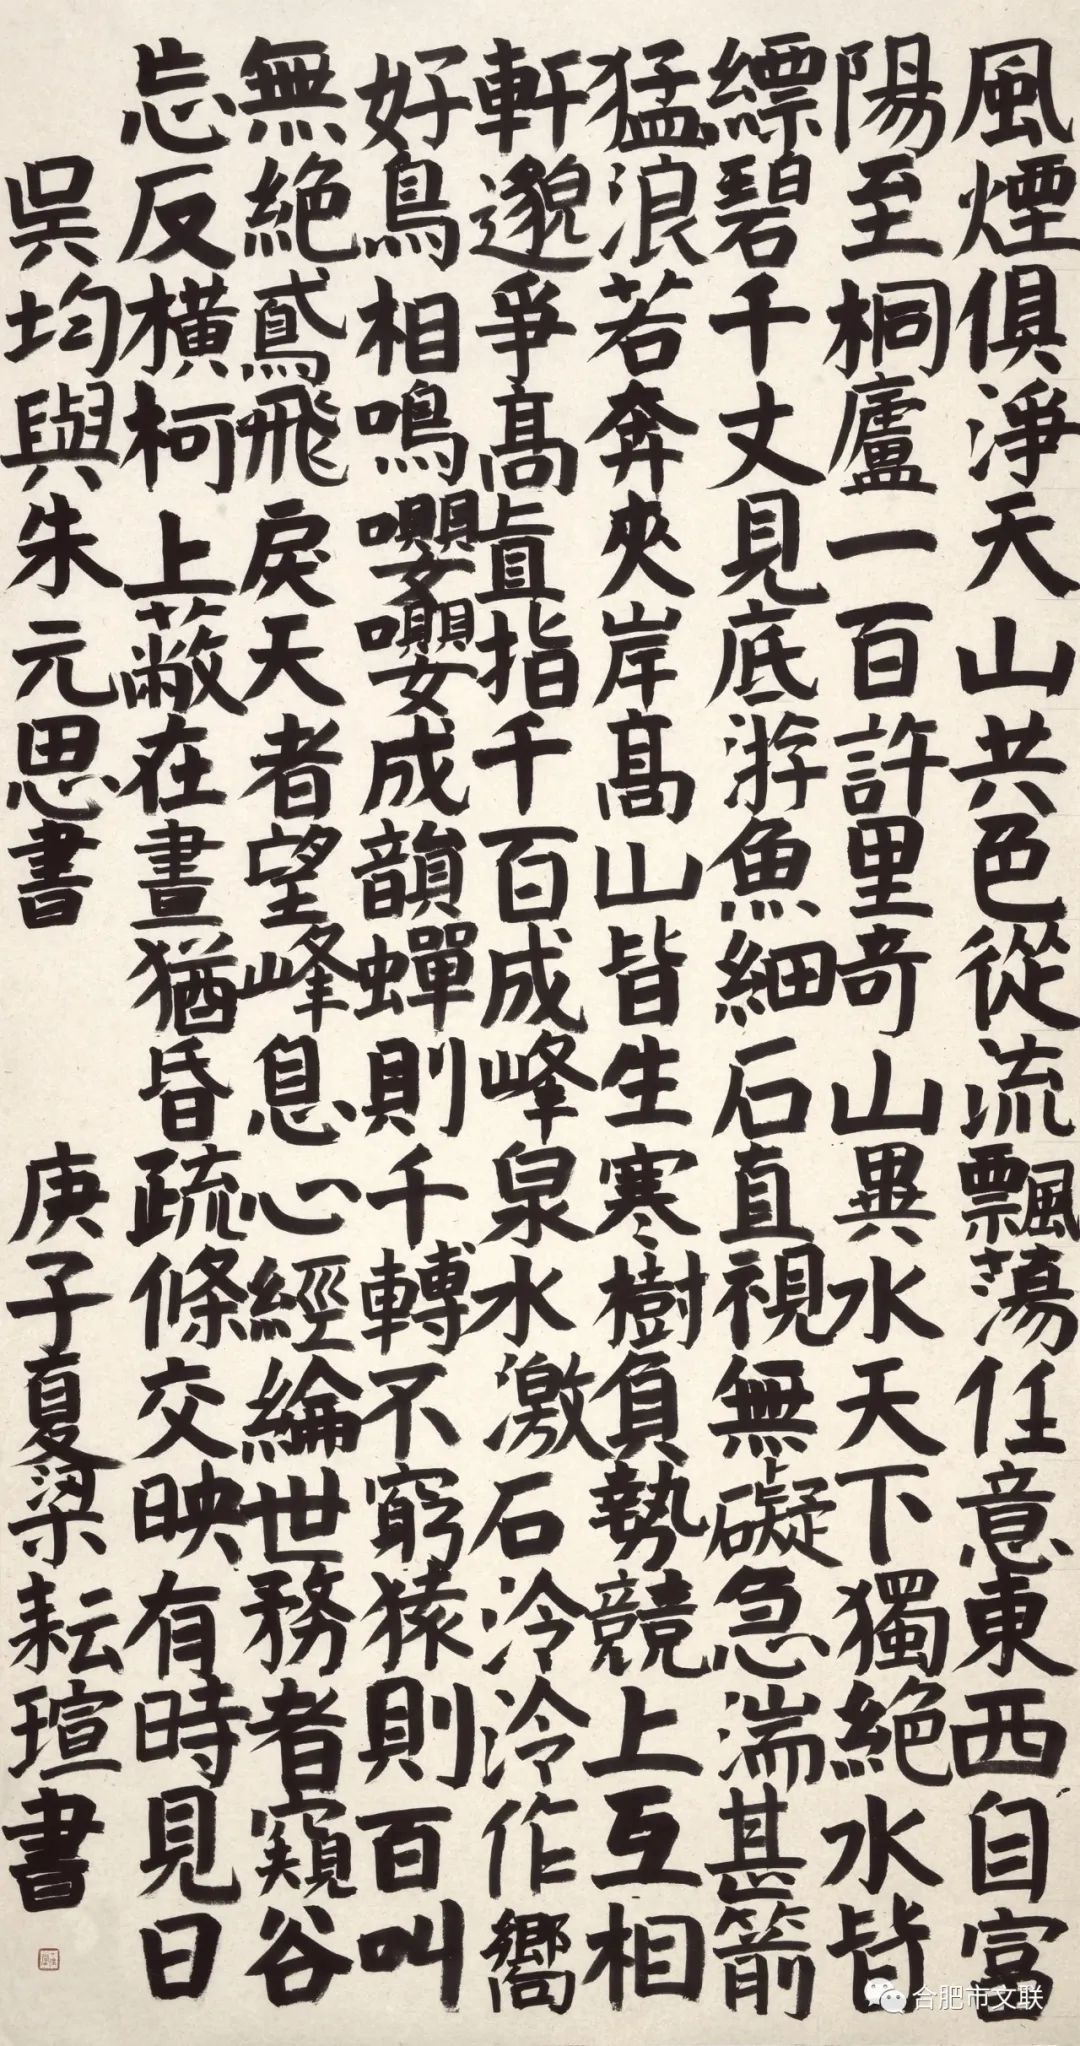 風煙俱淨天山共色從流飄蕩任意東西自富
陽至桐廬一百許里奇山異水天下獨絕水皆
縹碧千丈見底游魚細石直視無礙急湍甚箭
猛浪若奔夾岸髙山皆生寒樹負勢競上互相
軒邈爭髙直指千百成峰泉水激石泠泠作嚮
好鳥相鳴嚶嚶成韻蟬則千轉不窮猿則百叫
無絕鳶飛戾天者望峰息心經綸世務者窺谷
忘反橫柯上蔽在晝猶昏疏條交映有時見日
吳均與朱元思書 庚子夏梁耘瑄書
合肥市文联